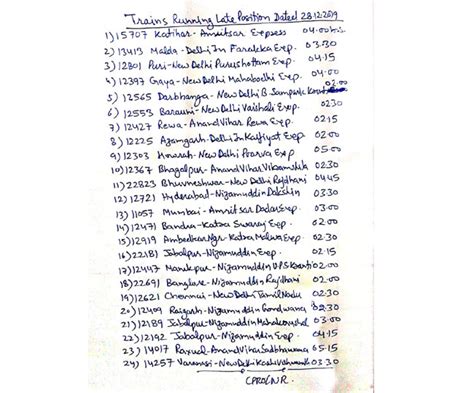 Trains Running Late Position Dated 28.12.2019
1) 15707 Katihar - Amritsar Express 04.00
2) 13413 Malda - Delhi Jn Farakka Exp. 03.30
3) 12801 Puri - New Delhi Purushottam Exp. 04.15
4) 12397 Gaya - New Delhi Mahabodhi Exp. 04.00
5) 12565 Darbhanga - New Delhi B. Sampark Kranti 02.00
6) 12553 Barauni - New Delhi Vaishali Exp. 03.30
7) 12427 Rewa - Anand Vihar Rewa Exp. 02.15
8) 12225 Azamgarh - Delhi Jn Kaifiyat Exp. 02.00
9) 12303 Howrah - New Delhi Poorva Exp 05.00
10) 12367 Bhagalpur - Anand Vihar Vikramshila 02.30
11) 22823 Bhuvneshwar - New Delhi Rajdhani 04.45
12) 12721 Hyderabad - Nizamuddin Dakshin 03.30
13) 11057 Mumbai - Amritsar Dadar Exp. 03.00
14) 12471 Bandra - Katra Swaraj Exp. 02.00
15) 12919 Ambedkar Ngr - Katra Malwa Exp. 02.30
16) 22181 Jabalpur - Nizamuddin Exp. 02.15
17) 12447 Manikpur - Nizamuddin U.P.S Kranti 02.00
18) 22691 Banglure - Nizamuddin Rajdhani 02.30
19) 12621 Chennai - New Delhi Tamil Nadu 02.30
20) 12409 Raigarh - Nizamuddin Gondwana 02.30
21) 12189 Jabalpur - Nizamuddin Mahakaushal 03.00
22) 12192 Jabalpur - Nizamuddin Exp. 04.15
23) 14017 Raxual - Anand Vihar Sadbhavna 05.15
24) 14257 Varansi - New Delhi Kashi Vishwanath 03.30
CPRO/NR.